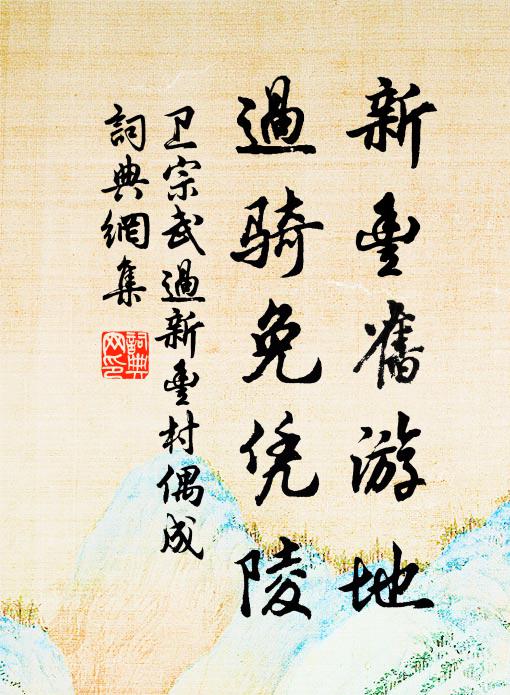 新豊舊游地
過骑免凭陵
卫宗武過新豊村偶成
詞典網集
詞典网印